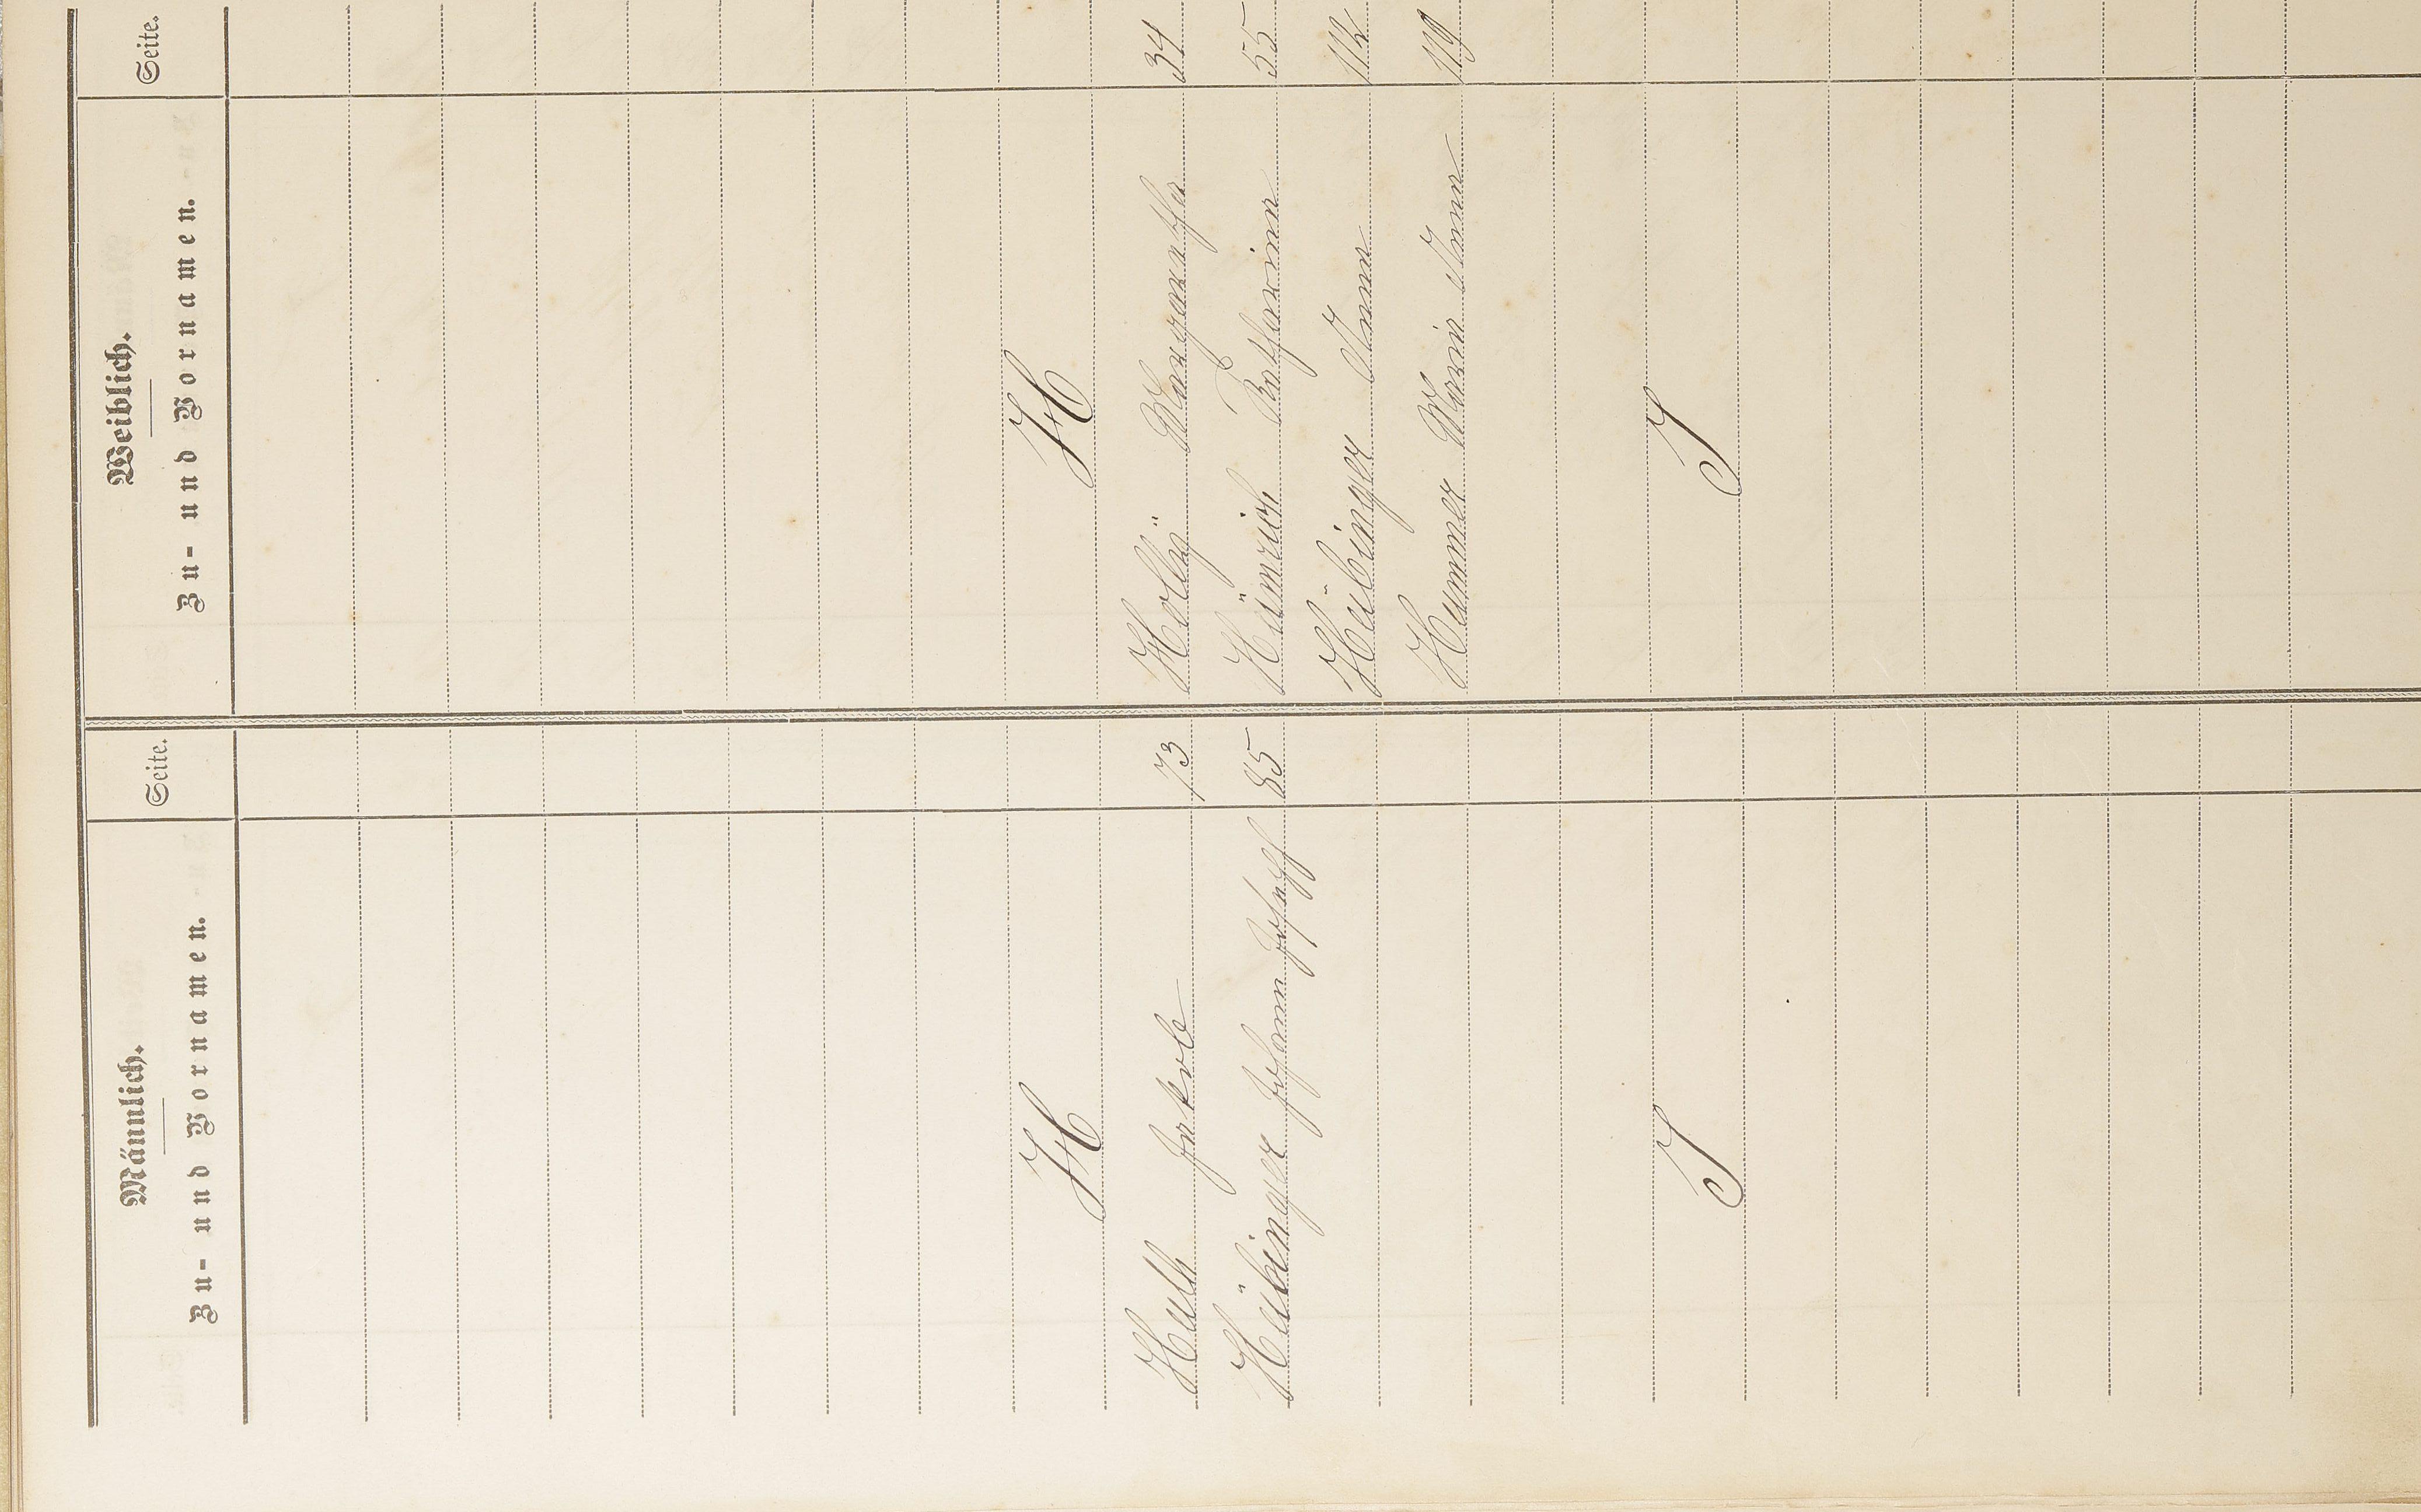 Männlich.
Zu- und Vornamen. Seite.
H
Huth Jakob 73
Hübinger Johann Joseph 85
I
Weiblich.
Zu- und Vornamen. Seite.
H
Margaretha 34
Katharina 55
Hübinger Anna 112
Hummer Maria Anna 119
I